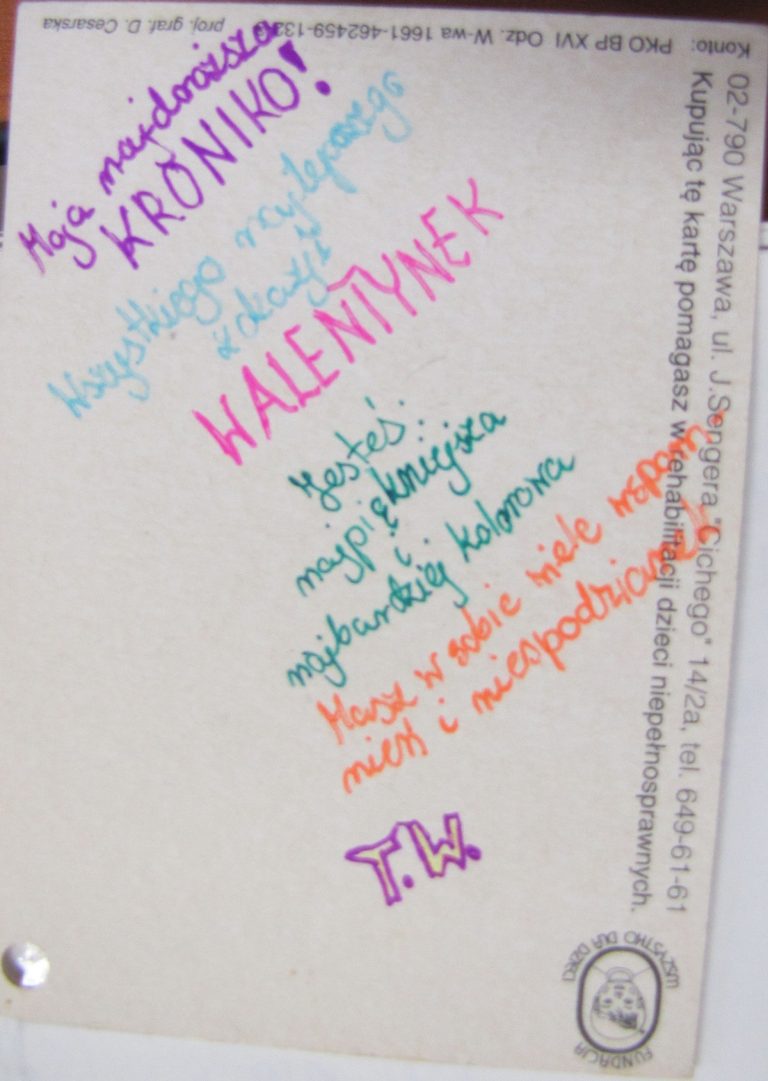 Moja najdroższa
KRONIKO!
Wszystkiego najlepszego
z okazji
WALENTYNEK
Jesteś:
najpiękniejsza
i
najbardziej kolorowa
Masz w sobie wiele wspom-
nień i niespodzianek
T.W.
02-790 Warszawa, ul. J.Sengera "Cichego" 14/2a, tel. 649-61-61
Kupując tę kartę pomagasz w rehabilitacji dzieci niepełnosprawnych.
Konto: PKO BP XVI Odz. W-wa 1661-462459-132
proj. graf. D. Cesarska
FUNDACJA
WSZYSTKO DLA DZIECI